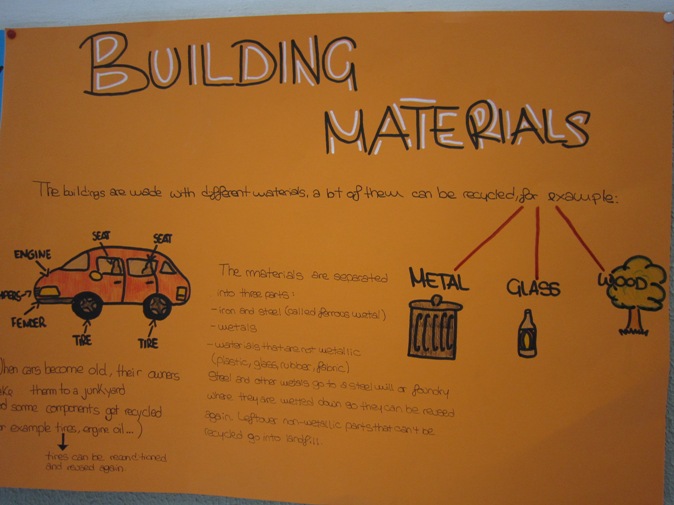 BUILDING
MATERIALS
The buildings are made with different materials, a lot of them can be recycled, for example:
METAL
GLASS
WOOD
SEAT
SEAT
ENGINE
FENDER
TIRE
TIRE
The materials are separated
into three parts:
- iron and steel (called ferrous metal)
- metals
- materials that are not metallic
(plastic, glass, rubber, fabric)
Steel and other metals go to a steel mill or foundry
where they are melted down so they can be reused
again. Leftover non-metallic parts that can't be
recycled go into landfill.
When cars become old, their owners
them to a junkyard
some components get recycled
example tires, engine oil...)
tires can be reconditioned
and reused again.